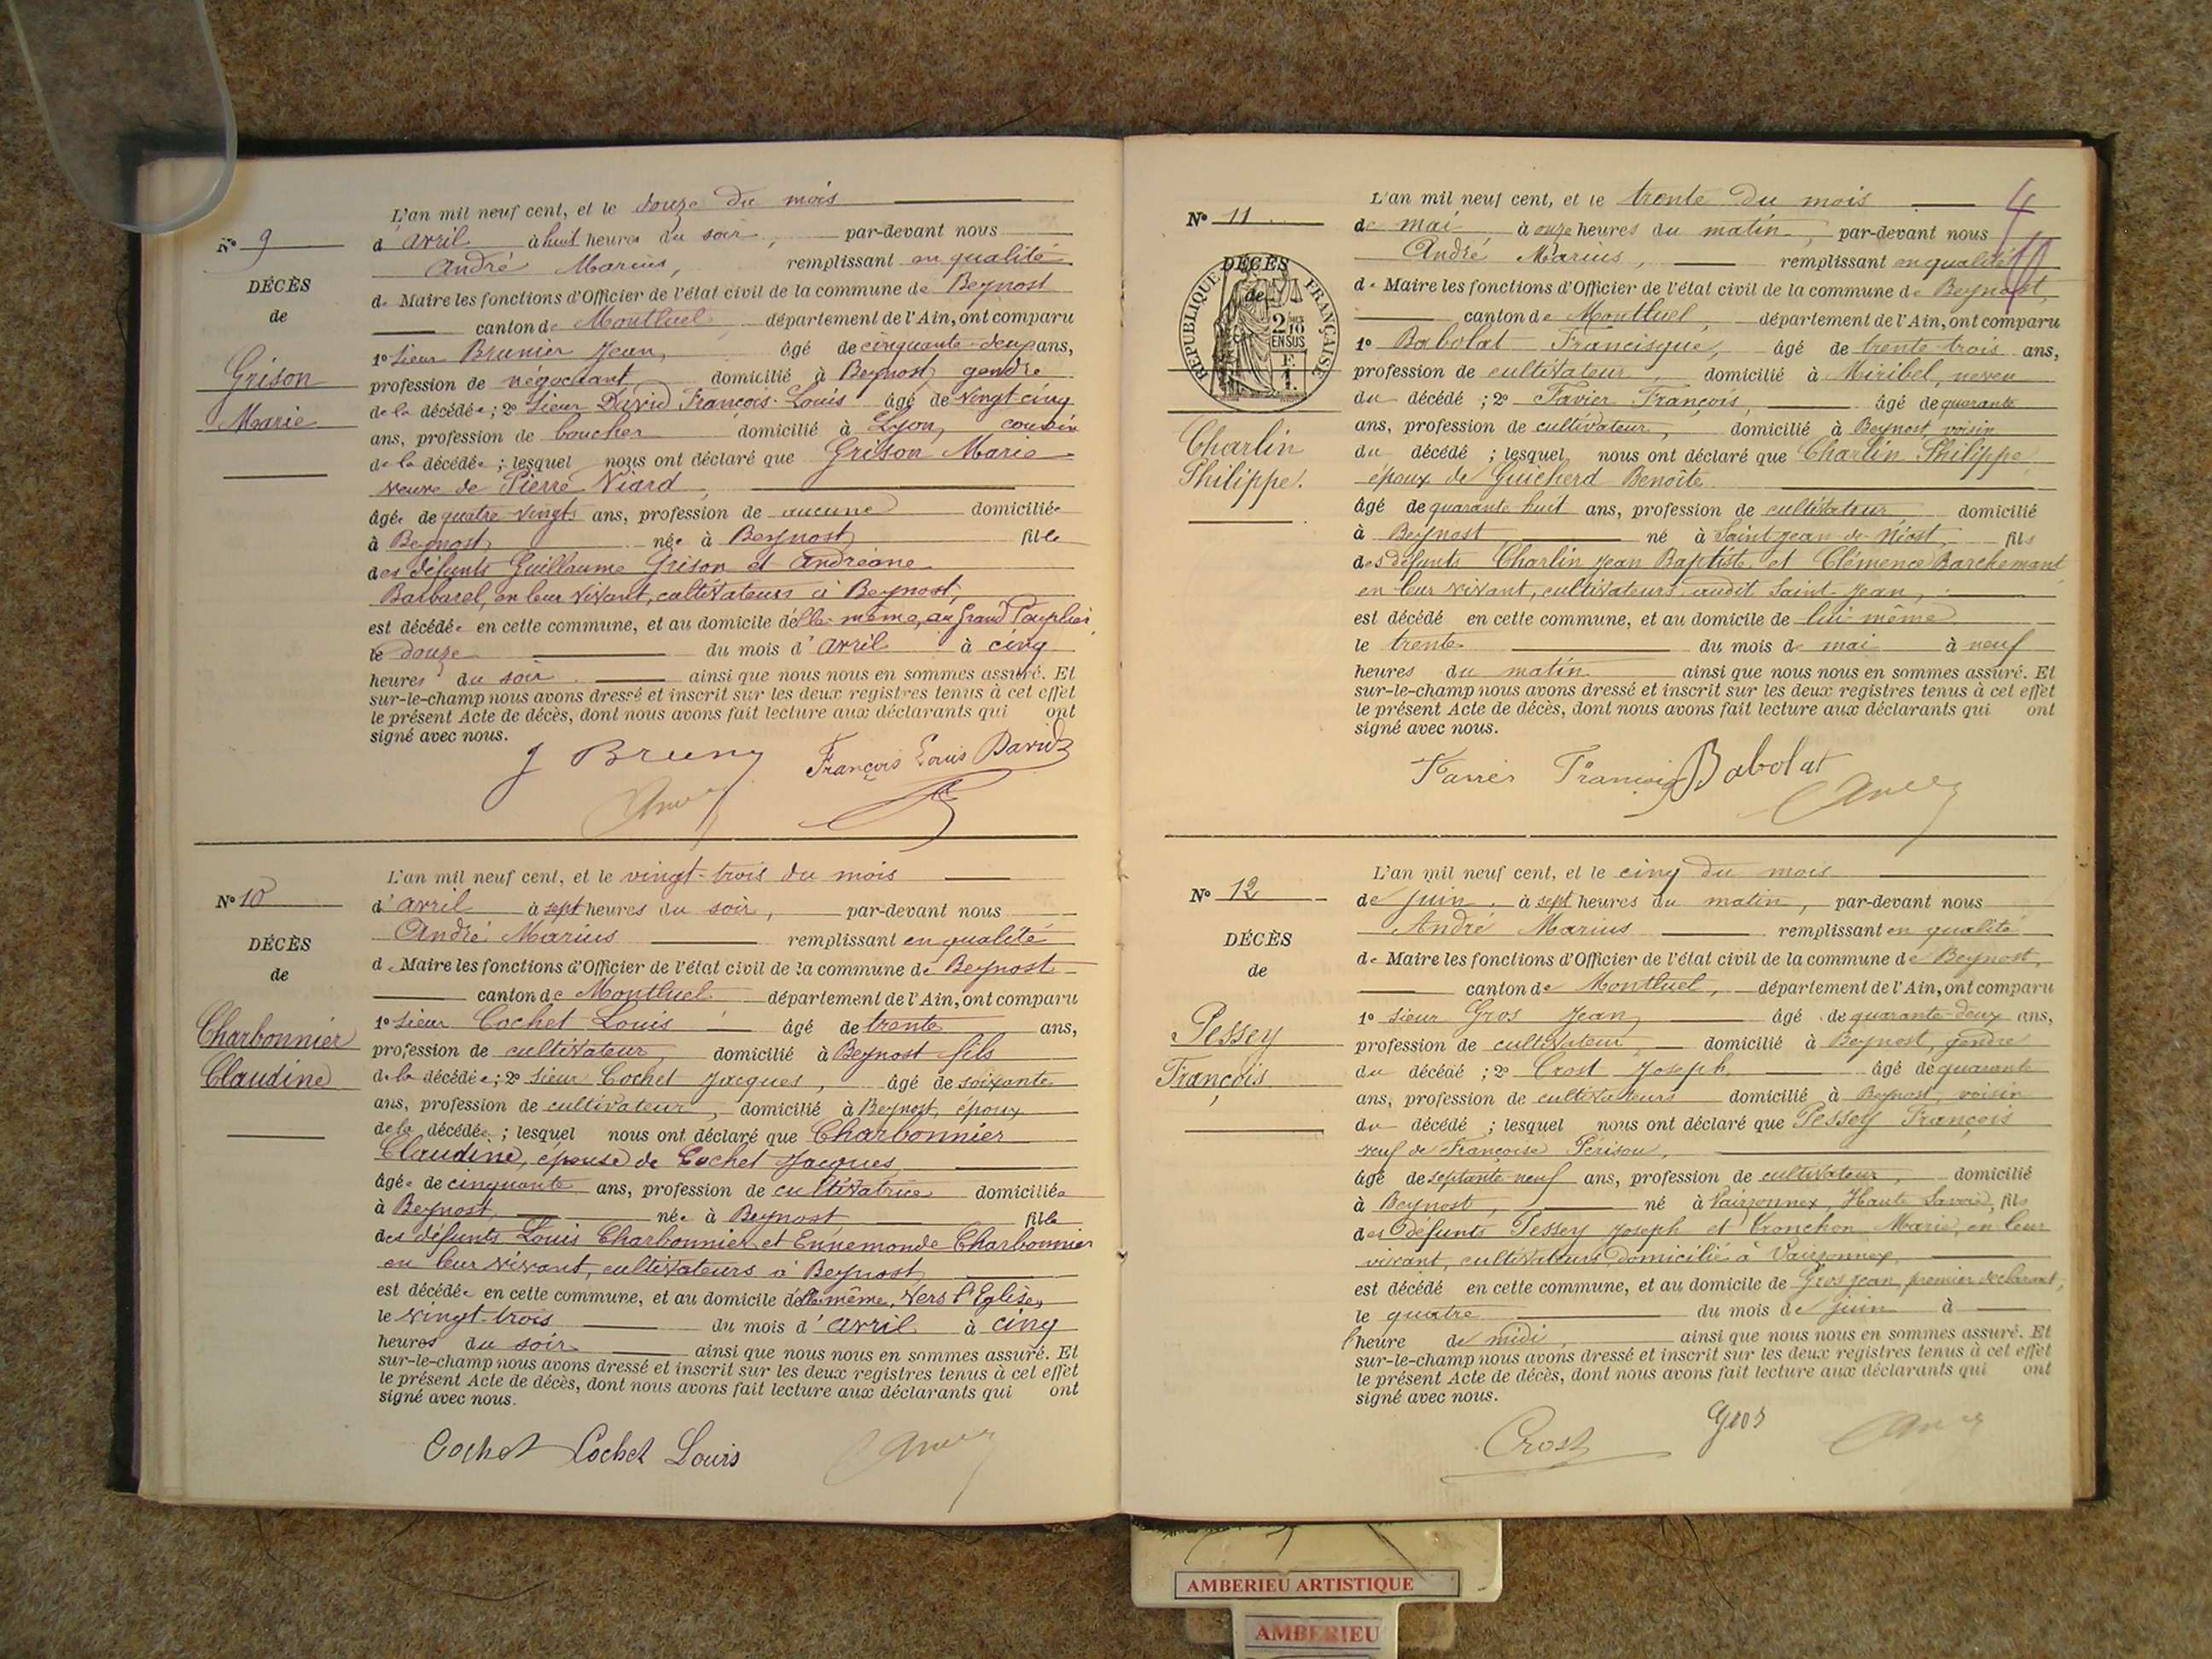 N° 9
DÉCÈS
de
Grison
Marie
L'an mil neuf cent, et le douze du mois
d'avril à huit heures du soir, par-devant nous
André Marius, remplissant en qualité
de Maire les fonctions d'Officier de l'état civil de la commune de Beynost
canton de Montluel département de l'Ain, ont comparu
1° Sieur Brunier Jean, âgé de cinquante-deux ans,
profession de négociant, domicilié à Beynost, gendre
de la décédée; 2° Sieur David François-Louis âgé de vingt-cinq
ans, profession de boucher domicilié à Lyon, cousin
de la décédée; lesquel nous ont déclaré que Grison Marie
veuve de Pierre Viard,
âgée de quatre-vingts ans, profession de aucune domiciliée
à Beynost, née à Beynost, fille
des défunts Guillaume Grison et Andréane
Barbarel, en leur vivant, cultivateurs à Beynost,
est décédée en cette commune, et au domicile d'elle-même, au Grand Peuplier,
le douze du mois d'avril à cinq
heures du soir ainsi que nous nous en sommes assuré. Et
sur-le-champ nous avons dressé et inscrit sur les deux registres tenus à cet effet
le présent Acte de décès, dont nous avons fait lecture aux déclarants qui ont
signé avec nous.
François Louis David
N° 10
DÉCÈS
de
Charbonnier
Claudine
L'an mil neuf cent, et le vingt-trois du mois
d'avril à sept heures du soir, par-devant nous
André Marius remplissant en qualité
de Maire les fonctions d'Officier de l'état civil de la commune de Beynost
canton de Montluel département de l'Ain, ont comparu
1° Sieur Cochet Louis âgé de trente ans,
profession de cultivateur, domicilié à Beynost fils
de la décédée; 2° Sieur Cochet Jacques, âgé de soixante
ans, profession de cultivateur, domicilié à Beynost, époux
de la décédée; lesquel nous ont déclaré que Charbonnier
Claudine, épouse de Cochet Jacques
âgée de cinquante ans, profession de cultivatrice domiciliée
à Beynost, née à Beynost, fille
des défunts Louis Charbonnier et Ennemonde Charbonnier
en leur vivant, cultivateurs à Beynost,
est décédée en cette commune, et au domicile d'elle même, vers l'Eglise,
le vingt-trois du mois d'avril à cinq
heures du soir ainsi que nous nous en sommes assuré. Et
sur-le-champ nous avons dressé et inscrit sur les deux registres tenus à cet effet
le présent Acte de décès, dont nous avons fait lecture aux déclarants qui ont
signé avec nous.
Cochet Cochet Louis
N° 11
DÉCÈS
de
RÉPUBLIQUE FRANÇAISE
2/10
EN SUS
F
1.
Charlin
Philippe.
L'an mil neuf cent, et le trente du mois
de mai à onze heures du matin, par-devant nous
André Marius, remplissant en qualité
de Maire les fonctions d'Officier de l'état civil de la commune de Beynost,
canton de Montluel, département de l'Ain, ont comparu
1° Babolat Francisque, âgé de trente-trois ans,
profession de cultivateur, domicilié à Miribel, neveu
du décédé; 2° Favier François, âgé de quarante
ans, profession de cultivateur, domicilié à Beynost voisin
du décédé; lesquel nous ont déclaré que Charlin Philippe
époux de Guicherd Benoîte
âgé de quarante huit ans, profession de cultivateur domicilié
à Beynost né à Saint-Jean de Niost, fils
des défunts Charlin Jean Baptiste, et Clémence Barchemant
en leur vivant, cultivateurs audit Saint-Jean,
est décédé en cette commune, et au domicile de lui-même
le trente du mois de mai à neuf
heures du matin ainsi que nous nous en sommes assuré. Et
sur-le-champ nous avons dressé et inscrit sur les deux registres tenus à cet effet
le présent Acte de décès, dont nous avons fait lecture aux déclarants qui ont
signé avec nous.
François Babolat
N° 12
DÉCÈS
de
Pessey
François
L'an mil neuf cent, et le cinq du mois
de juin à sept heures du matin, par-devant nous
André Marius remplissant en qualité
de Maire les fonctions d'Officier de l'état civil de la commune de Beynost,
canton de Montluel, département de l'Ain, ont comparu
1° Sieur Gros Jean, âgé de quarante-deux ans,
profession de cultivateur, domicilié à Beynost, gendre
du décédé; 2° Crost Joseph âgé de quarante
ans, profession de cultivateurs domicilié à Beynost, voisin
du décédé; lesquel nous ont déclaré que Pessey François
veuf de Françoise Périsou,
âgé de septante-neuf ans, profession de cultivateur, domicilié
à Beynost, né à Vaizonnex Haute Savoie, fils
des défunts Pessey Joseph et Tronchon Marie, en leur
vivant, cultivateurs domicilié à Vaizonnex,
est décédé en cette commune, et au domicile de Gros Jean, premier déclarant,
le quatre du mois de juin à
l'heure de midi, ainsi que nous nous en sommes assuré. Et
sur-le-champ nous avons dressé et inscrit sur les deux registres tenus à cet effet
le présent Acte de décès, dont nous avons fait lecture aux déclarants qui ont
signé avec nous.
Crost Gros
AMBERIEU ARTISTIQUE
AMBERIEU